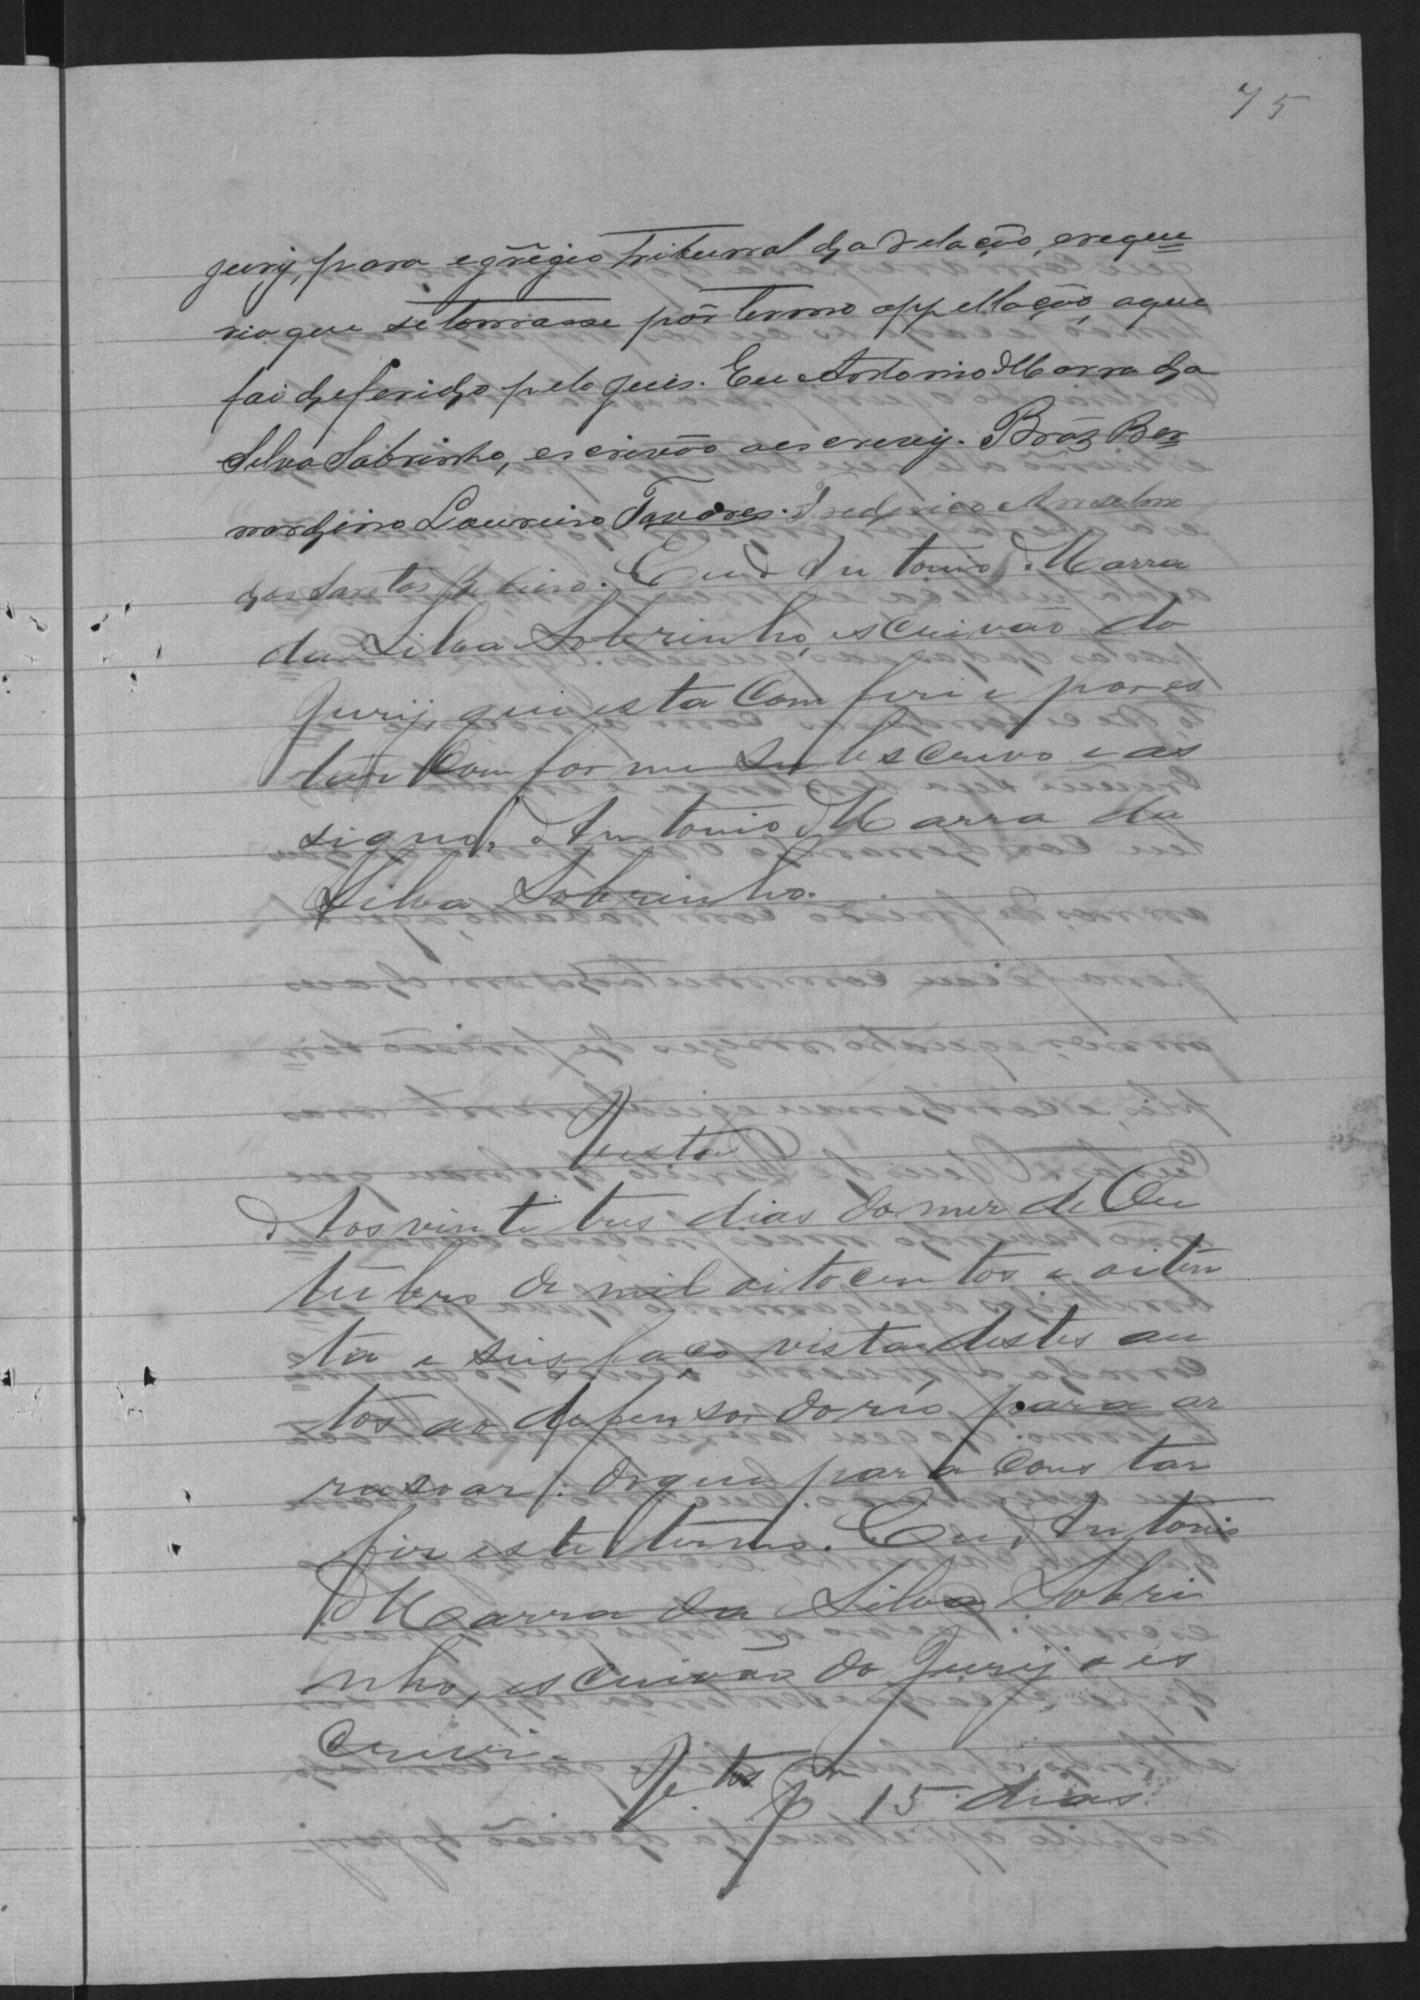 75
jury, para egregio Tribunal da relação, e reque
ria que se tomasse pôr termo appellação, aque
foi deferido pelo Juis. Eu Antonio Marra da
Silva Sobrinho, escrivão o escrevy. Bráz Ber
nardino Loureiro Tavares. Frederico Anselmo
dos Santos. Eu Antonio Marra
da Silva Sobrinho, escrivão do
Jury, que esta comferi e por es
tár comforme subscrevo e as
signo. Antonio Marra da
Silva Sobrinho.
Vista
Aos vinte tres dias do mez de Ou
tubro de mil oitocentos e oiten
ta e seis faço vista destes au
tos ao defensor do réo para ar
rasoar: do que para constar
fiz este termo. Eu Antonio
Marra da Silva Sobri
nho, escrivão do Jury o es
crevi.
V.tos p 15 dias